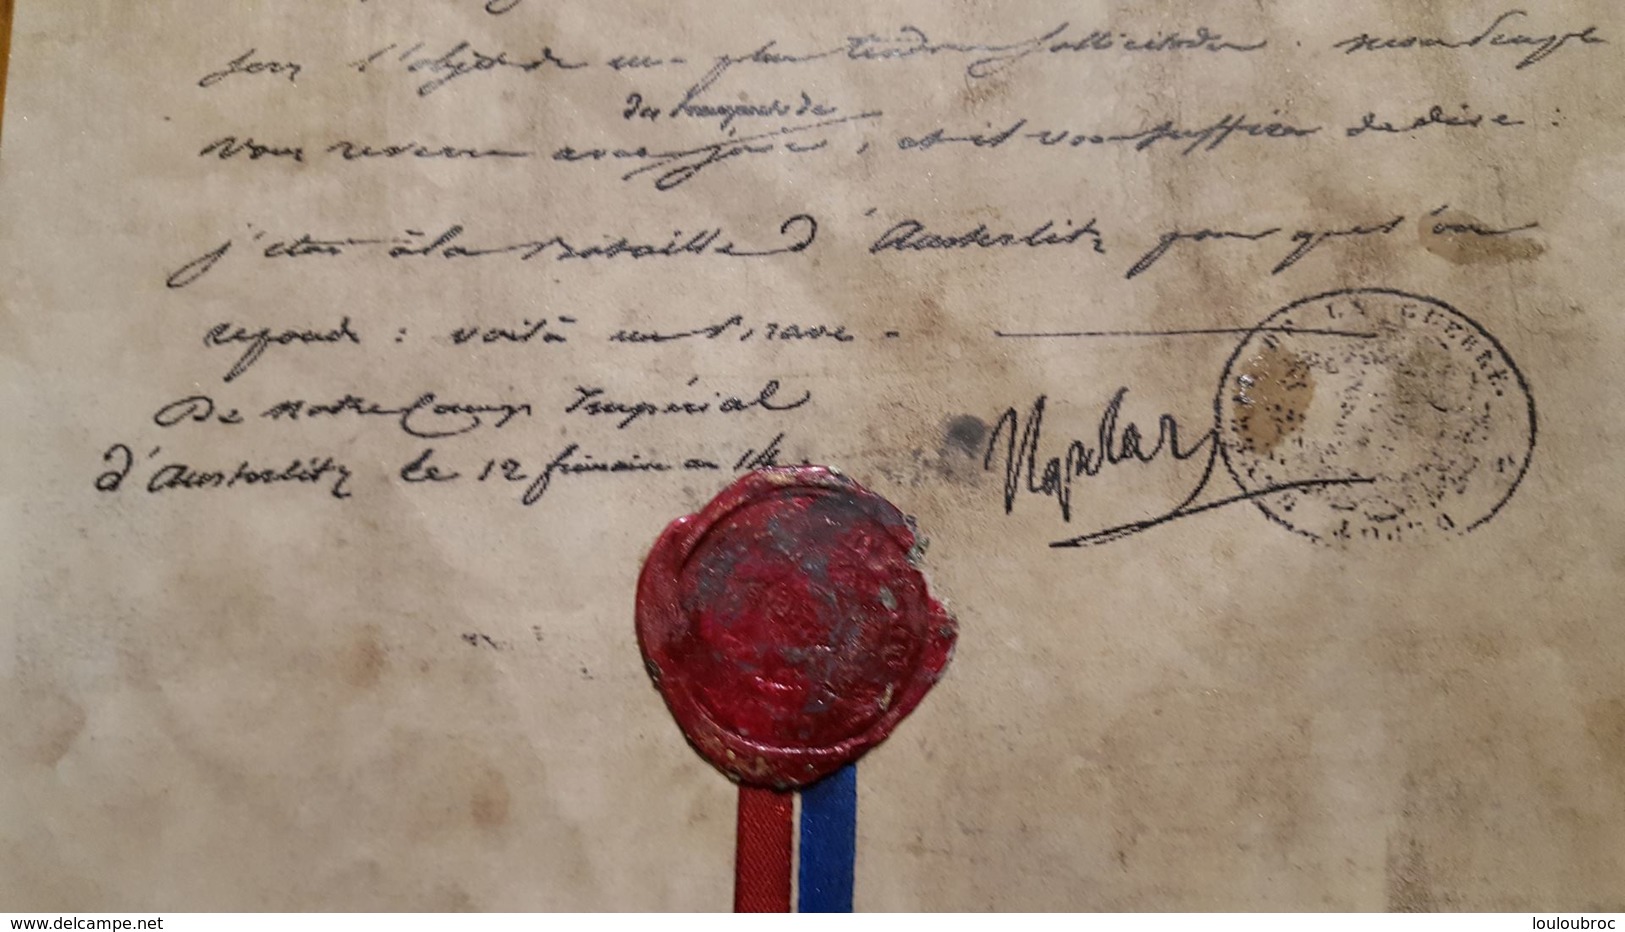 sera l'objet de ma plus tendre sollicitude. mon Peuple
des transports de
vous reverra avec joie, et il vous suffira de dire :
j'étais à la Bataille d'Austerlitz pour que l'on
réponde : voilà un Brave -
De notre Camp Impérial
d'Austerlitz le 12 frimaire an 14.
Napoleon
DEPOT DE LA GUERRE
www.delcampe.net
louloubroc